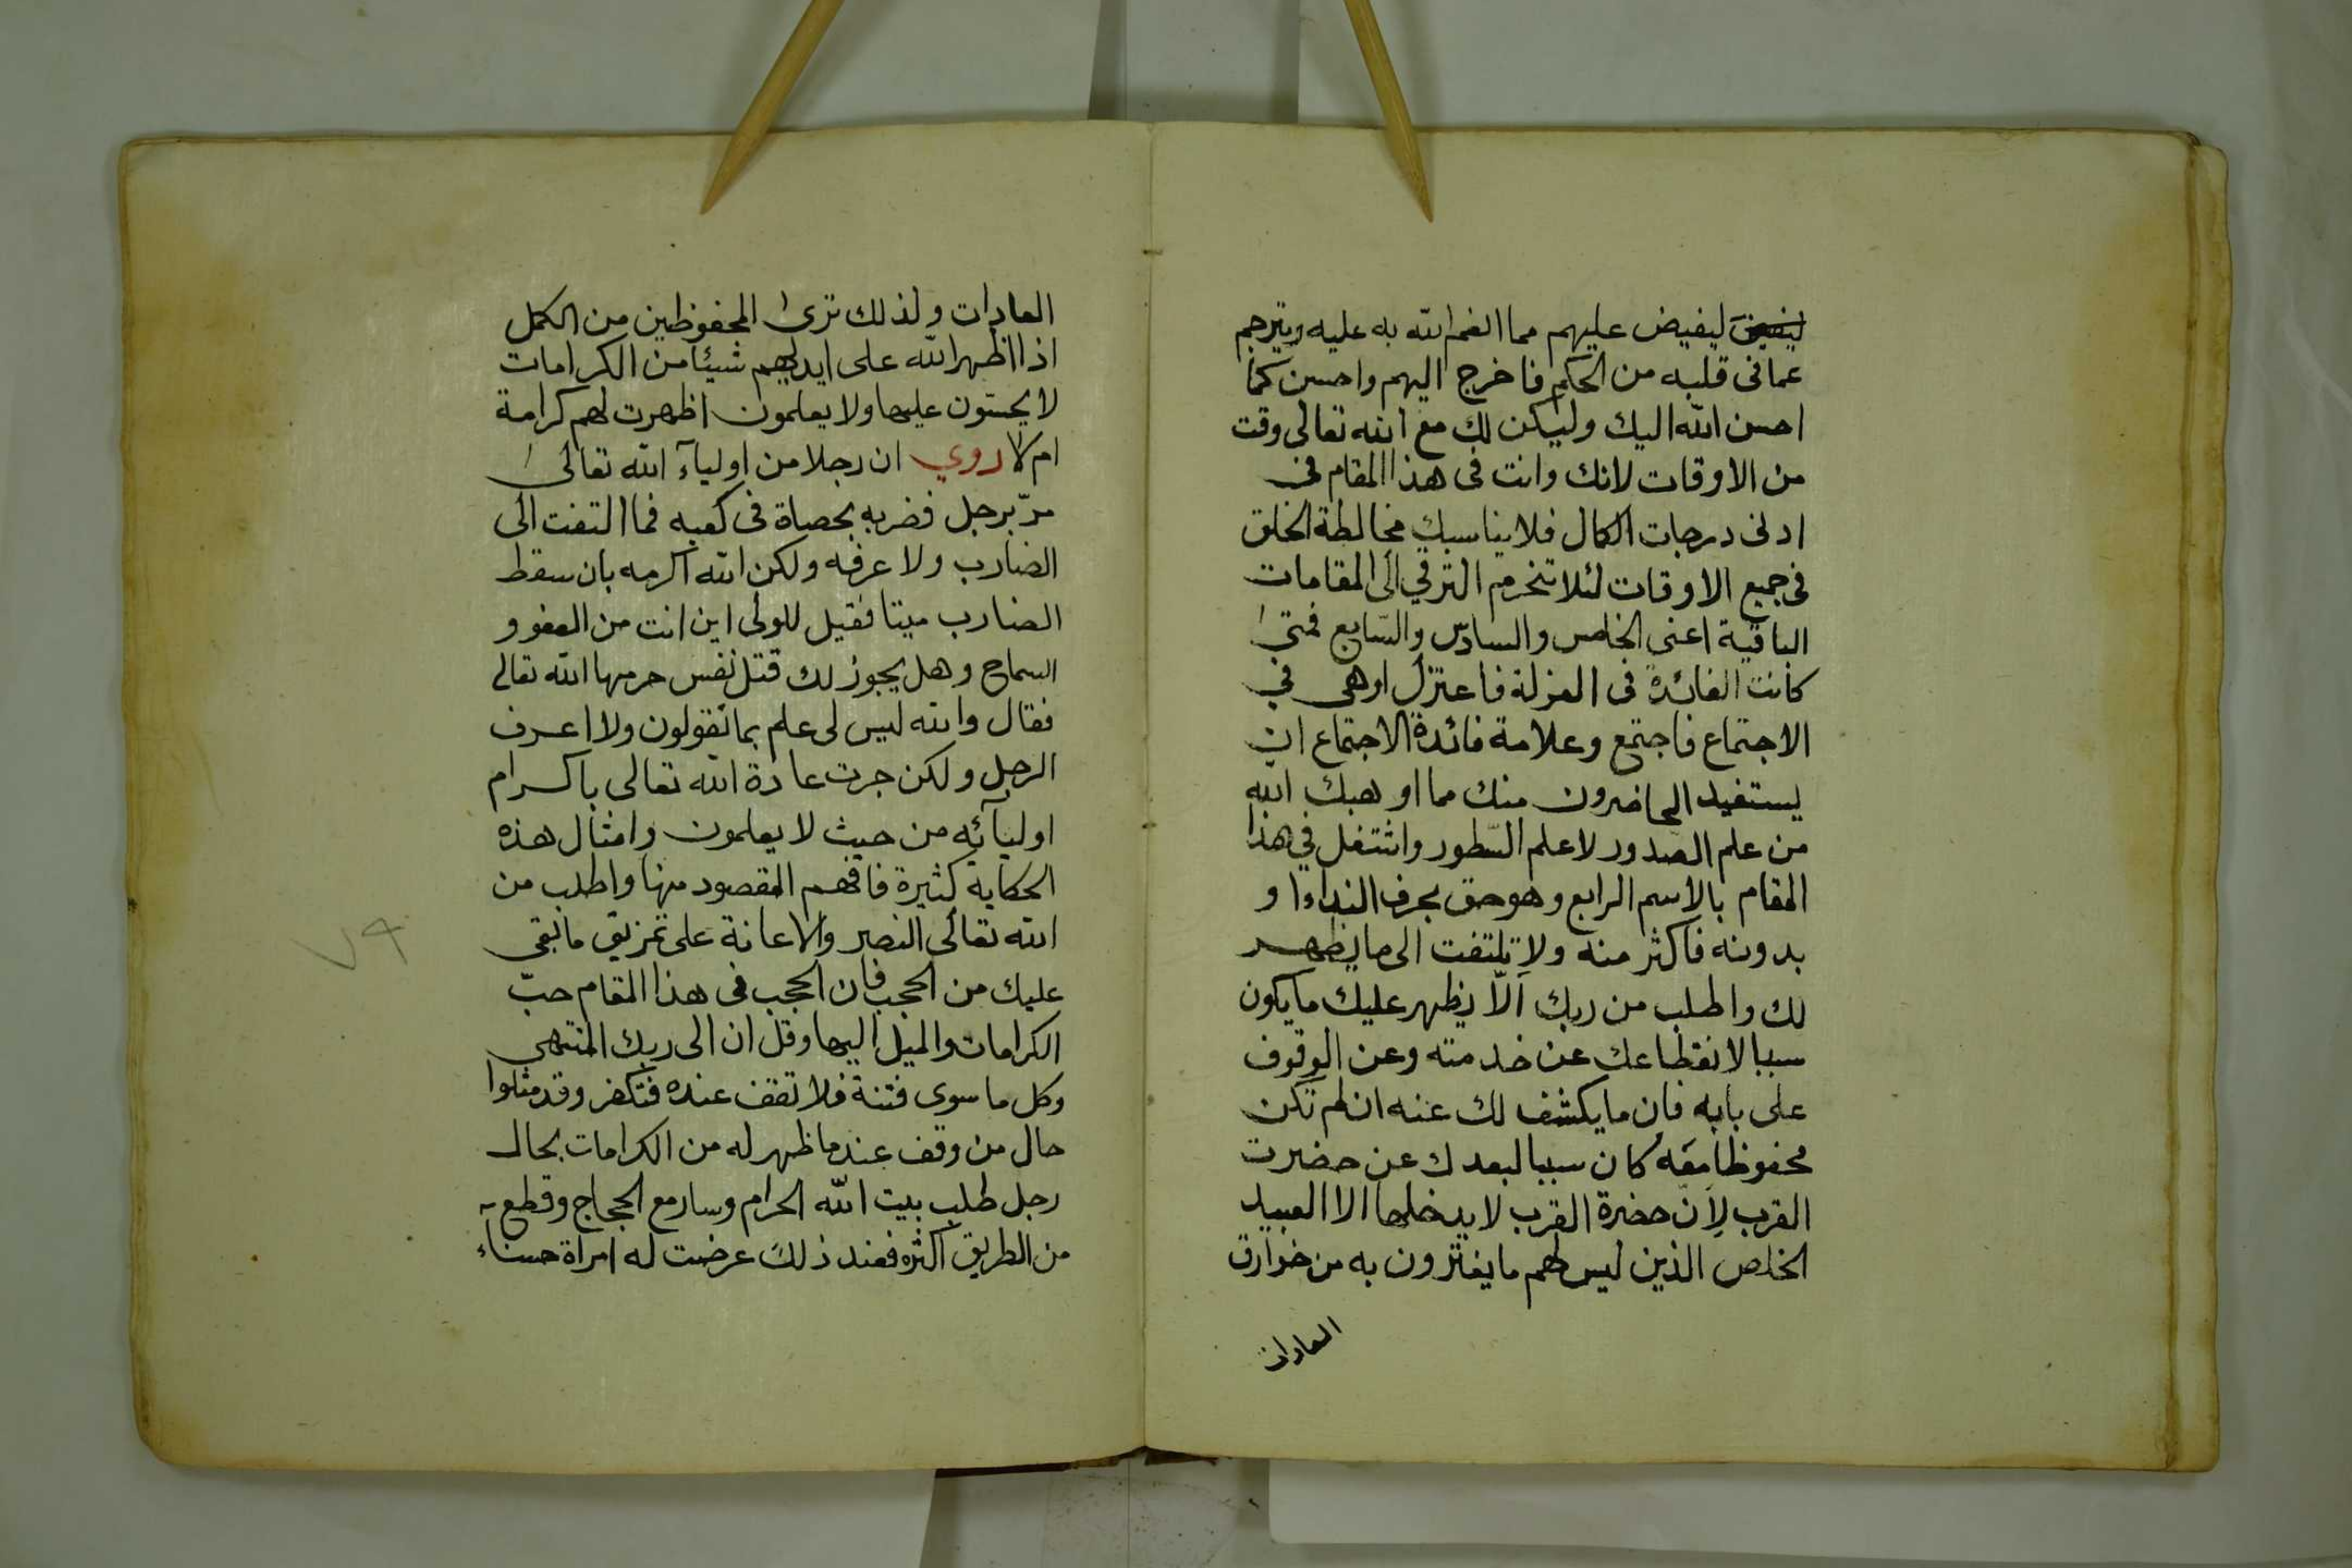 ليفيض عليهم مما انعم الله به عليه ويترجم
عما فى قلبه من الحكم فاخرج اليهم واحسن كما
احسن الله اليك وليكن لك مع الله تعالى وقت
من الاوقات لانك وانت فى هذا المقام فى
ادنى درجات الكمال فلا يناسبك مخالطة الخلق
فى جميع الاوقات لئلا تنخرم الترقي الى المقامات
الباقية اعنى الخامس والسادس والسّابع فمتىٰ
كانت الفائدة فى العزلة فاعتزل او هى في
الاجتماع فاجتمع وعلامة فائدة الاجتماع ان
يستفيد الحاضرون منك مما اوهبك الله
من علم الصدور لا علم السّطور واشتغل في هذا
المقام بالاسم الرابع وهو حق بحرف النداء او
بدونه فاكثر منه ولا تلتفت الى ما يظهر
لك واطلب من ربك الّا يظهر عليك ما يكون
سببا لانقطاعك عن خدمته وعن الوقوف
على بابه فان ما يكشف لك عنه ان لم تكن
محفوظا معه كان سببا لبعدك عن حضرت
القرب لأنّ حضرة القرب لا يدخلها الا العبيد
الخلص الذين ليس لهم ما يغترون به من خوارق
العادات
العادات ولذلك ترىٰ المحفوظين من الكمل
اذا اظهر الله على ايديهم شيئا من الكرامات
لا يحسّون عليها ولا يعلمون اظهرت لهم كرامة
ام لا روي ان رجلا من اوليآء الله تعالىٰ
مرّ برجل فضربه بحصاة فى كعبه فما التفت الى
الضارب ولا عرفه ولكن الله اكرمه بان سقط
الضارب ميتا فقيل للولى اين انت من العفو و
السماح وهل يجوز لك قتل نفس حرمها الله تعالى
فقال والله ليس لى علم بما تقولون ولا اعرف
الرجل ولكن جرت عادة الله تعالى باكرام
اوليآئه من حيث لا يعلمون وامثال هذه
الحكاية كثيرة فافهم المقصود منها واطلب من
الله تعالى النصر والاعانة على تمزيق ما بقى
عليك من الحجب فان الحجب فى هذا المقام حبّ
الكرامات والميل اليها وقل ان الى ربك المنتهى
وكل ما سوى فتنة فلا تقف عنده فتكفر وقد مثلوا
حال من وقف عند ما ظهر له من الكرامات بحال
رجل طلب بيت الله الحرام وسار مع الحجاج وقطع
من الطريق اكثره فعند ذلك عرضت له امراة حسناء
٧٩